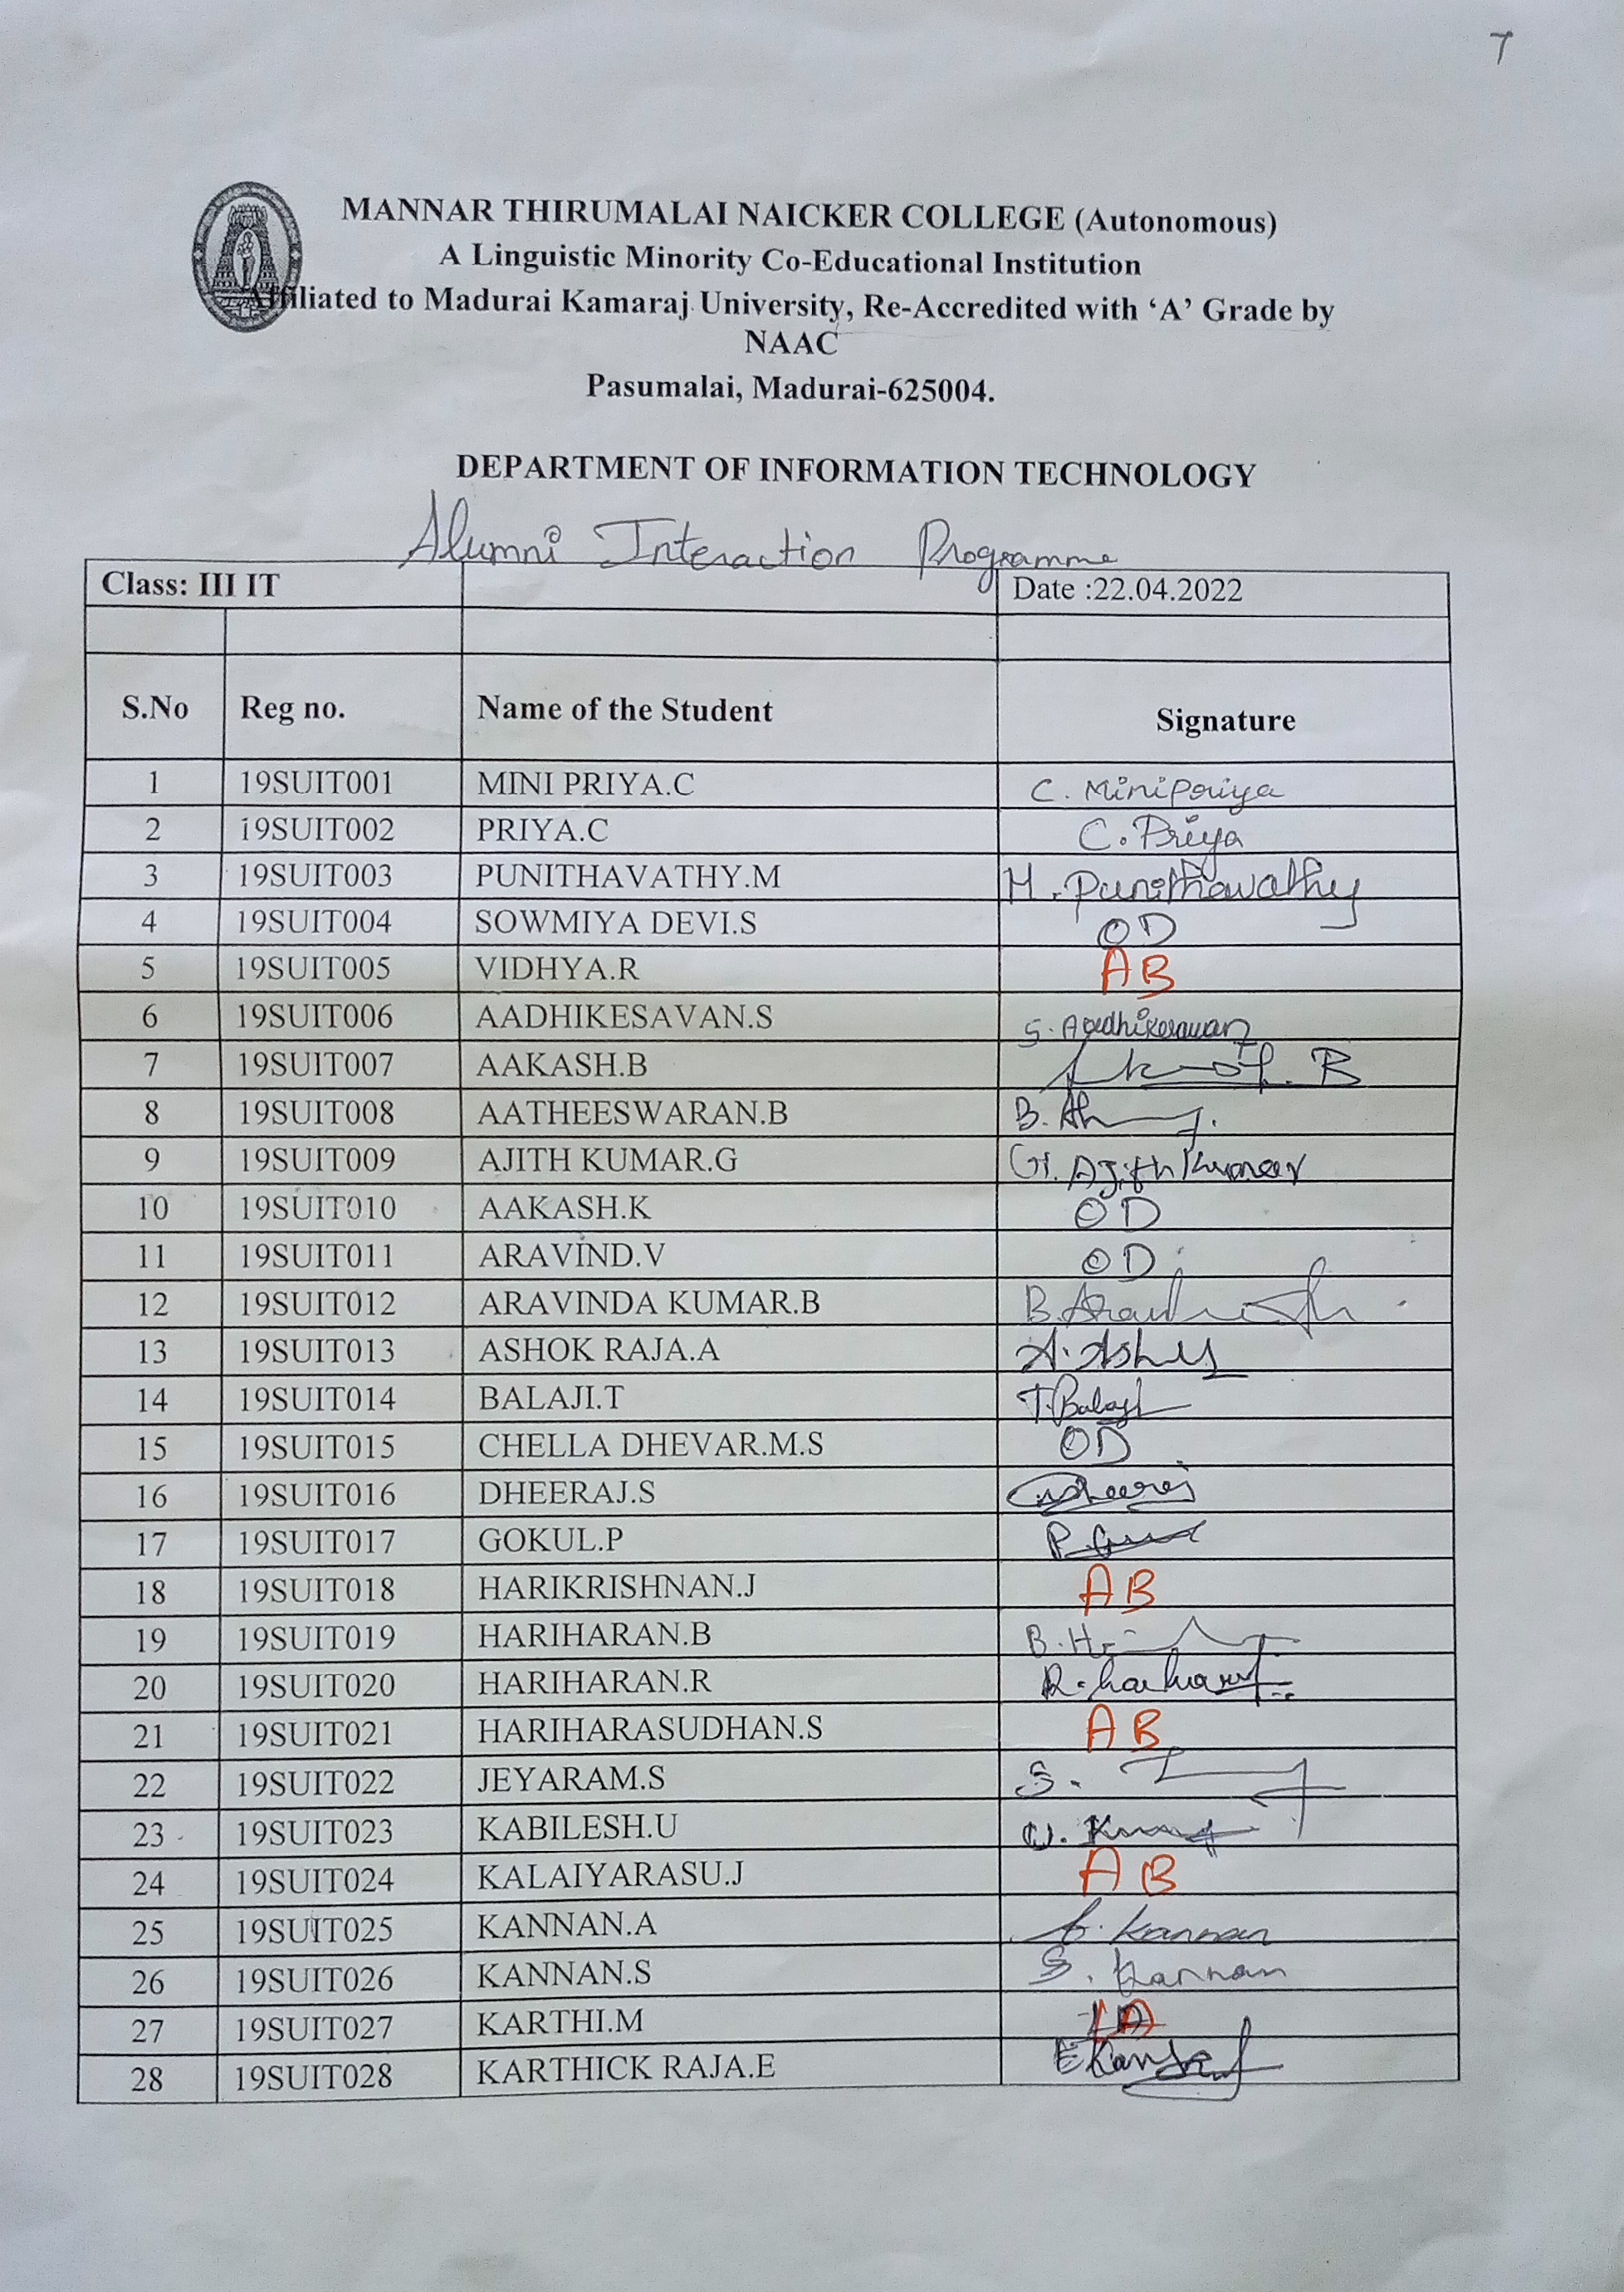 7
MANNAR THIRUMALAI NAICKER COLLEGE (Autonomous)
A Linguistic Minority Co-Educational Institution
Affiliated to Madurai Kamaraj University, Re-Accredited with ‘A’ Grade by
NAAC
Pasumalai, Madurai-625004.
DEPARTMENT OF INFORMATION TECHNOLOGY
Alumni Interaction Programme
Class: III IT Date :22.04.2022
S.No Reg no. Name of the Student Signature
1 19SUIT001 MINI PRIYA.C C. Minipriya
2 19SUIT002 PRIYA.C C.Priya
3 19SUIT003 PUNITHAVATHY.M M.Punithavathy
4 19SUIT004 SOWMIYA DEVI.S OD
5 19SUIT005 VIDHYA.R AB
6 19SUIT006 AADHIKESAVAN.S S. Aadhikesavan
7 19SUIT007 AAKASH.B
8 19SUIT008 AATHEESWARAN.B
9 19SUIT009 AJITH KUMAR.G G. Ajith Kumar
10 19SUIT010 AAKASH.K OD
11 19SUIT011 ARAVIND.V OD
12 19SUIT012 ARAVINDA KUMAR.B
13 19SUIT013 ASHOK RAJA.A
14 19SUIT014 BALAJI.T T.Balaji
15 19SUIT015 CHELLA DHEVAR.M.S OD
16 19SUIT016 DHEERAJ.S
17 19SUIT017 GOKUL.P
18 19SUIT018 HARIKRISHNAN.J AB
19 19SUIT019 HARIHARAN.B
20 19SUIT020 HARIHARAN.R
21 19SUIT021 HARIHARASUDHAN.S AB
22 19SUIT022 JEYARAM.S
23 19SUIT023 KABILESH.U
24 19SUIT024 KALAIYARASU.J AB
25 19SUIT025 KANNAN.A A. Kannan
26 19SUIT026 KANNAN.S S. Kannan
27 19SUIT027 KARTHI.M
28 19SUIT028 KARTHICK RAJA.E